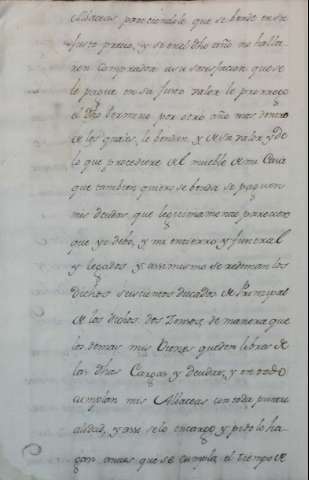 Albaceas poniendole que se bende en su
justo precio, y si en el dho año no halla
ren comprador a su satisfacion que se
le pague en su justo valor le prorrogo
el dho termino por otro año mas dentro
de los quales, le bendan, y de su valor y de
lo que procediere del mueble de mi Casa
que tambien quiero se benda se paguen
mis deudas que legitimamente parecieren
que yo debo, y mi entierro y funeral
y legados y assimismo se rediman los
dichos seiscientos ducados de Principal
de los dichos dos Zensos, de manera que
los demas mis Vienes queden libres de
las dhas Cargas, y deudas, y en todo
cumplan mis Albaceas con toda puntu
alidad, y que se lo encargo y pido lo ha
gan antes que se cumpla el tiempo de